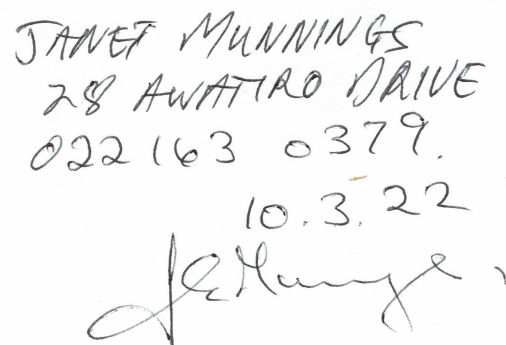 JANET MUNNINGS
28 AWATIRO DRIVE
022 163 0379.
10.3.22
JEMunnings